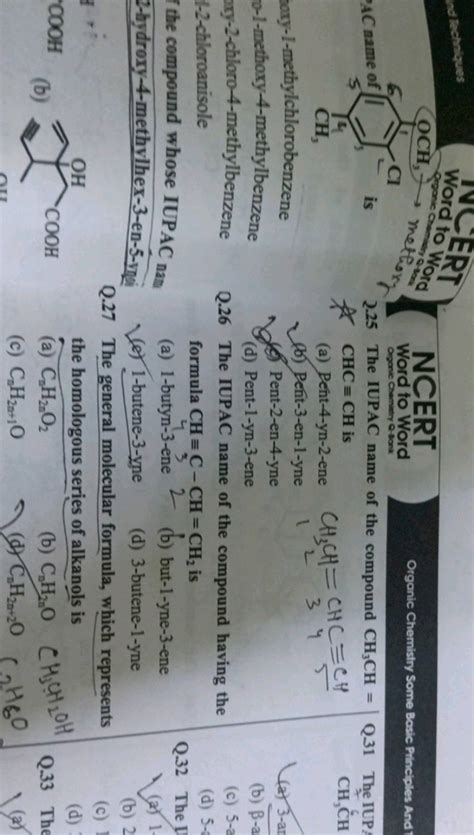 nd Techniques
NCERT
Word to Word
Organic Chemistry Q-bank
OCH3
methoxy
Cl
6
1
5
4
CH3
is
PAC name of
hoxy-1-methylchlorobenzene
ro-1-methoxy-4-methylbenzene
oxy-2-chloro-4-methylbenzene
l-2-chloroanisole
f the compound whose IUPAC nam
2-hydroxy-4-methylhex-3-en-5-ynoi
COOH
(b)
OH
COOH
OH
NCERT
Word to Word
Organic Chemistry Q-bank
Organic Chemistry Some Basic Principles And
Q.25 The IUPAC name of the compound CH3CH =
CHC ≡ CH is
(a) Pent-4-yn-2-ene
(b) Pent-3-en-1-yne
(c) Pent-2-en-4-yne
(d) Pent-1-yn-3-ene
CH3CH = CHC ≡ CH
1 2 3 4 5
Q.26 The IUPAC name of the compound having the
formula CH ≡ C – CH = CH2 is
4 3 2 1
(a) 1-butyn-3-ene
(b) but-1-yne-3-ene
(c) 1-butene-3-yne
(d) 3-butene-1-yne
Q.27 The general molecular formula, which represents
the homologous series of alkanols is
(a) CnH2nO2
(b) CnH2nO
(c) CnH2n+1O
(d) CnH2n+2O
CH3CH2OH
C2H6O
Q.31 The IUP
CH3CH
(a) 3-a
(b) β-a
(c) 5-a
(d) 5-
Q.32 The I
(a) 1-
(b) 2
(c) 1
(d)
Q.33 The
(a)